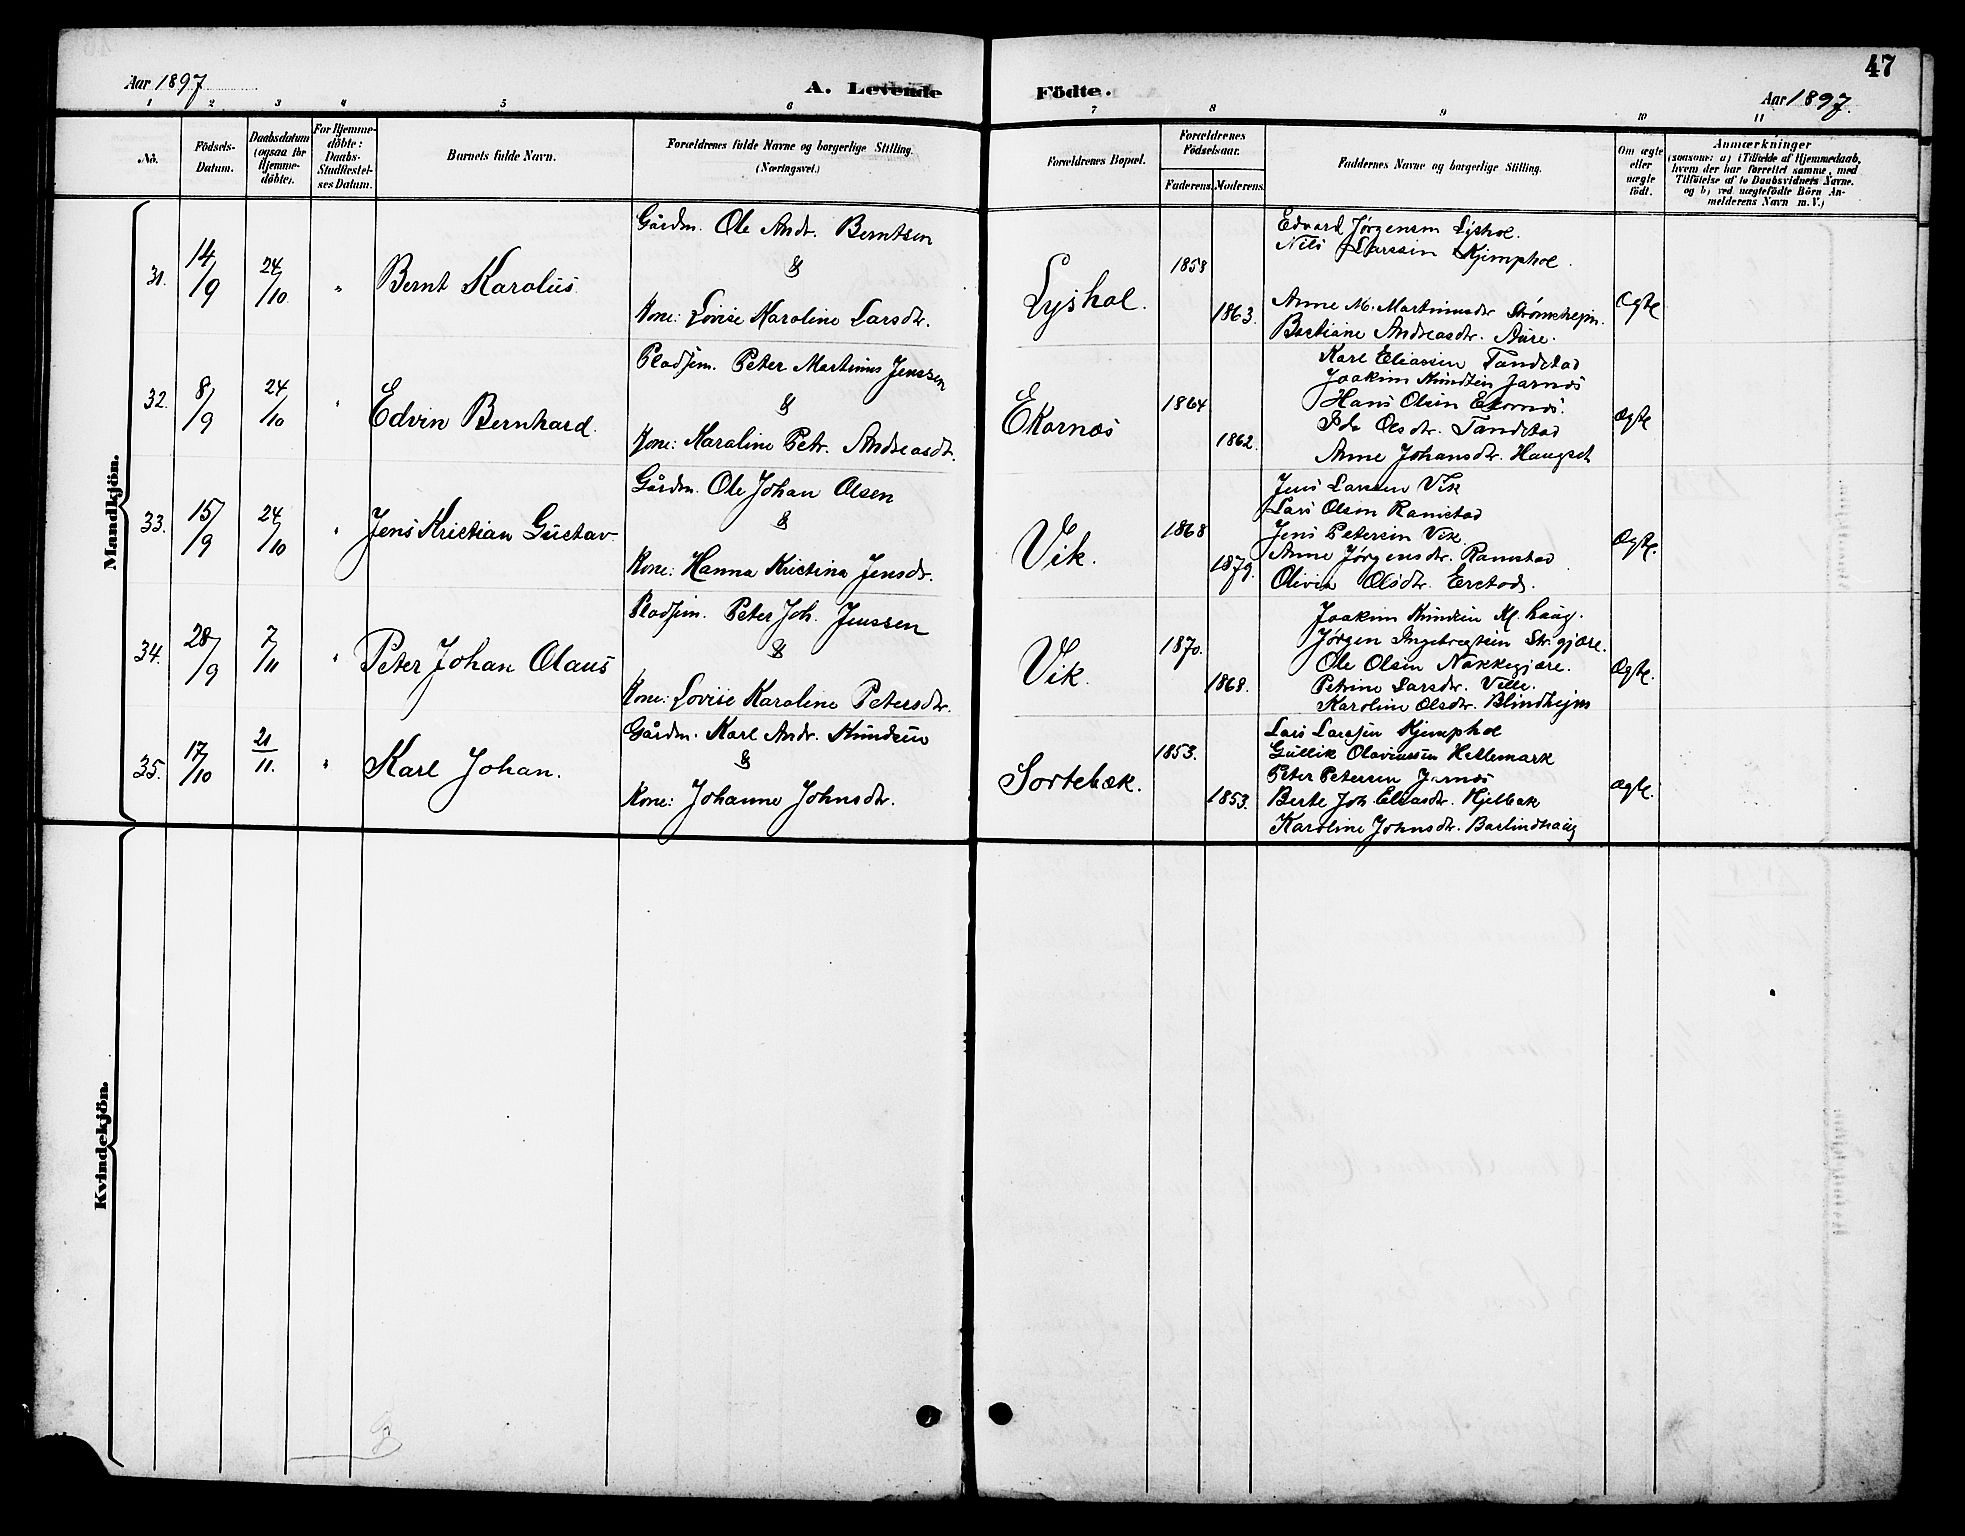 47
Aar 1897
A. Levende
Födte.
Aar 1897.
1 2 3 4 5 6 7 8 9 10 11
No.
Födsels-Datum.
Daabsdatum (ogsaa for Hjemme-döbte).
For Hjemme-döbte: Daabs-Stadfæstel-ses Datum.
Barnets fulde Navn.
Forældrenes fulde Navne og borgerlige Stilling. (Næringsvei.)
Forældrenes Bopæl.
Forældrenes Födselsaar.
Faderens. Moderens.
Faddernes Navne og borgerlige Stilling.
Om ægte eller uægte födt.
Anmærkninger
(saasom: a) i Tilfælde af Hjemmedaab, hvem der har forrettet samme, med Tilföielse af to Daabsvidners Navne. og b) ved uægtefödte Börn An-melderens Navn m. V.)
Mandkjön.
31. 14/9 24/10 " Bernt Karolus
Gårdm. Ole Andr. Berntsen
&
Kone: Lovise Karoline Larsdtr.
Lyshol. 1858 1863.
Edvard Jørgensen Lyshol.
Nils Larssen Kjemphol.
Anne M. Martinusdtr
Bastiane Andreasdtr. Aure.
Ægte
32. 8/9 24/10 " Edvin Bernhard.
Pladsm. Peter Martinus Jenssen
&
Kone: Karoline Petr. Andreasdtr.
Ekornæs 1864 1862.
Karl Eliassen Tandstad
Joakim Knudsen Jarnæs
Hans Olsen Ekornæs.
Olsdtr. Tandstad
Anne Johansdtr. Haugset
Ægte
33. 15/9 24/10 " Jens Kristian Gustav
Gårdm. Ole Johan Olsen
&
Kone: Hanna Kristina Jensdr.
Vik. 1868 1879.
Jens Larsen Vik
Lars Olsen Ramstad
Jens Petersen Vik.
Anne Jørgensdtr. Ramstad
Olivia Olsdtr. Erstad.
Ægte.
34. 28/9 7/11 " Peter Johan Olaus
Pladsm. Peter Joh. Jenssen
&
Kone: Lovise Karoline Petersdtr.
Vik. 1870. 1868.
Joakim Knudsen Kl. haug.
Jørgen Ingebregtsen Str.gjære.
Ole Olsen Nakkegjære.
Petrine Larsdtr. Velle.
Karoline Olsdtr. Blindhejm
Ægte.
35. 17/10 21/11. " Karl Johan.
Gårdm. Karl Andr. Knudsen
&
Kone: Johanne Johnsdtr.
Sortebæk. 1853. 1853.
Lars Larssen Kjemphol
Gullik Olavenssen Hellemark
Peter Petersen Jarnæs
Berte Joh. Eliasdtr. Hjelbak
Karoline Johnsdtr. Barlindhaug
Ægte.
Kvindekjön.